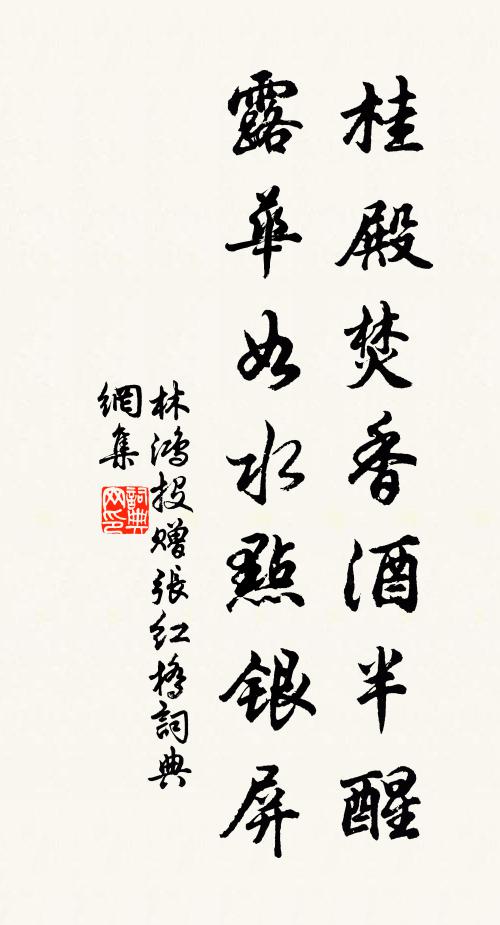 桂殿焚香酒半醒
露華如水點銀屏
林鴻投贈張紅橋詞典
網集
詞典
网印